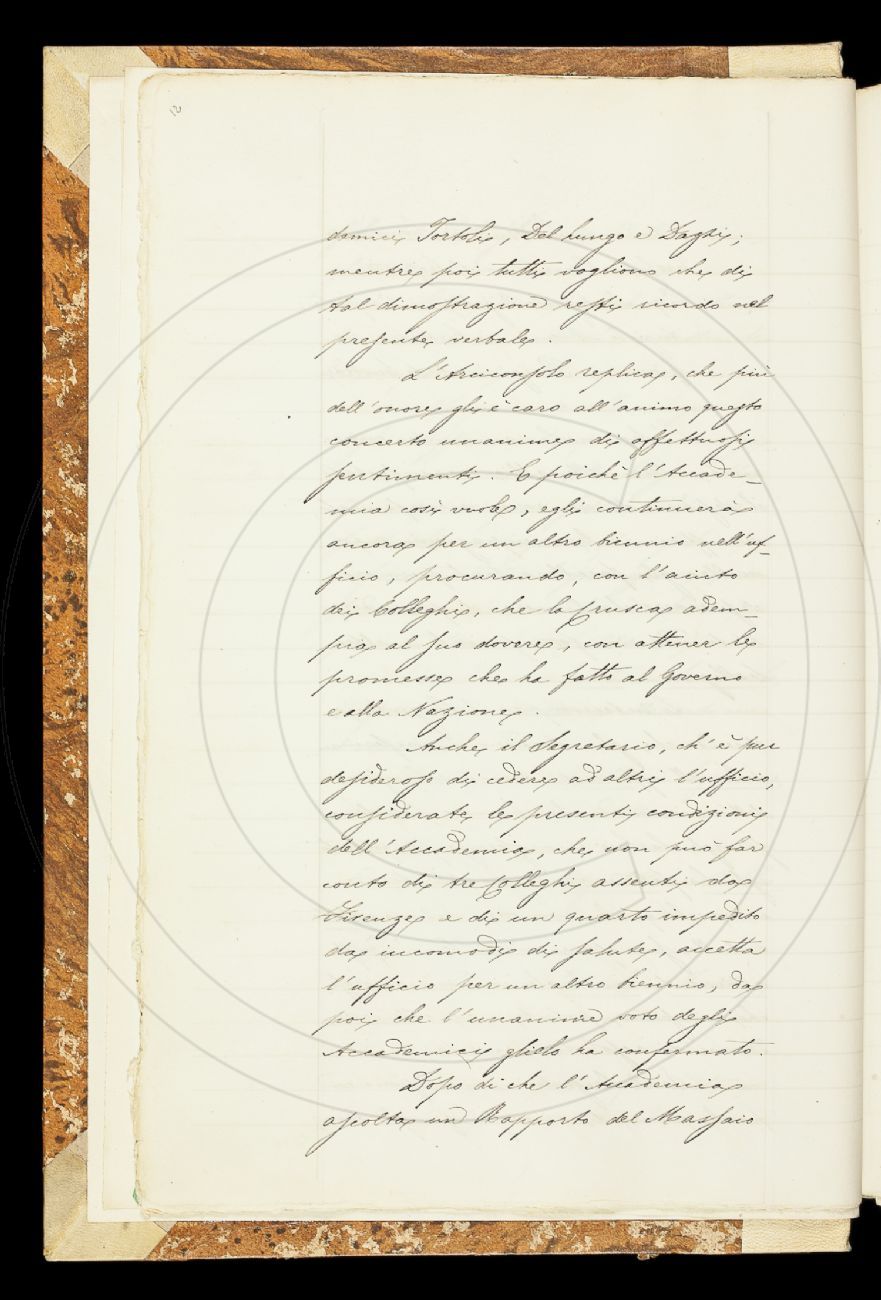 12
demici Tortoli, Del Lungo e Dazzi;
mentre poi tutti vogliono che di
tal dimostrazione resti ricordo nel
presente verbale.
L'Arciconsolo replica, che più
dell'onore gli è caro all'animo questo
concerto unanime di affettuosi
sentimenti. E poichè l'Accade-
mia così vuole, egli continuerà
ancora per un altro biennio nell'uf-
ficio, procurando, con l'aiuto
dei Colleghi, che la Crusca adem-
pia al suo dovere, con attener le
promesse che ha fatto al Governo
e alla Nazione.
Anche il Segretario, ch'è pur
desideroso di cedere ad altri l'ufficio,
considerate le presenti condizioni
dell'Accademia, che non può far
conto di tre Colleghi assenti da
Firenze e di un quarto impedito
da incomodi di salute, accetta
l'ufficio per un altro biennio, da
poi che l'unanime voto degli
Accademici glielo ha confermato.
Dopo di che l'Accademia
ascolta un Rapporto del Massaio